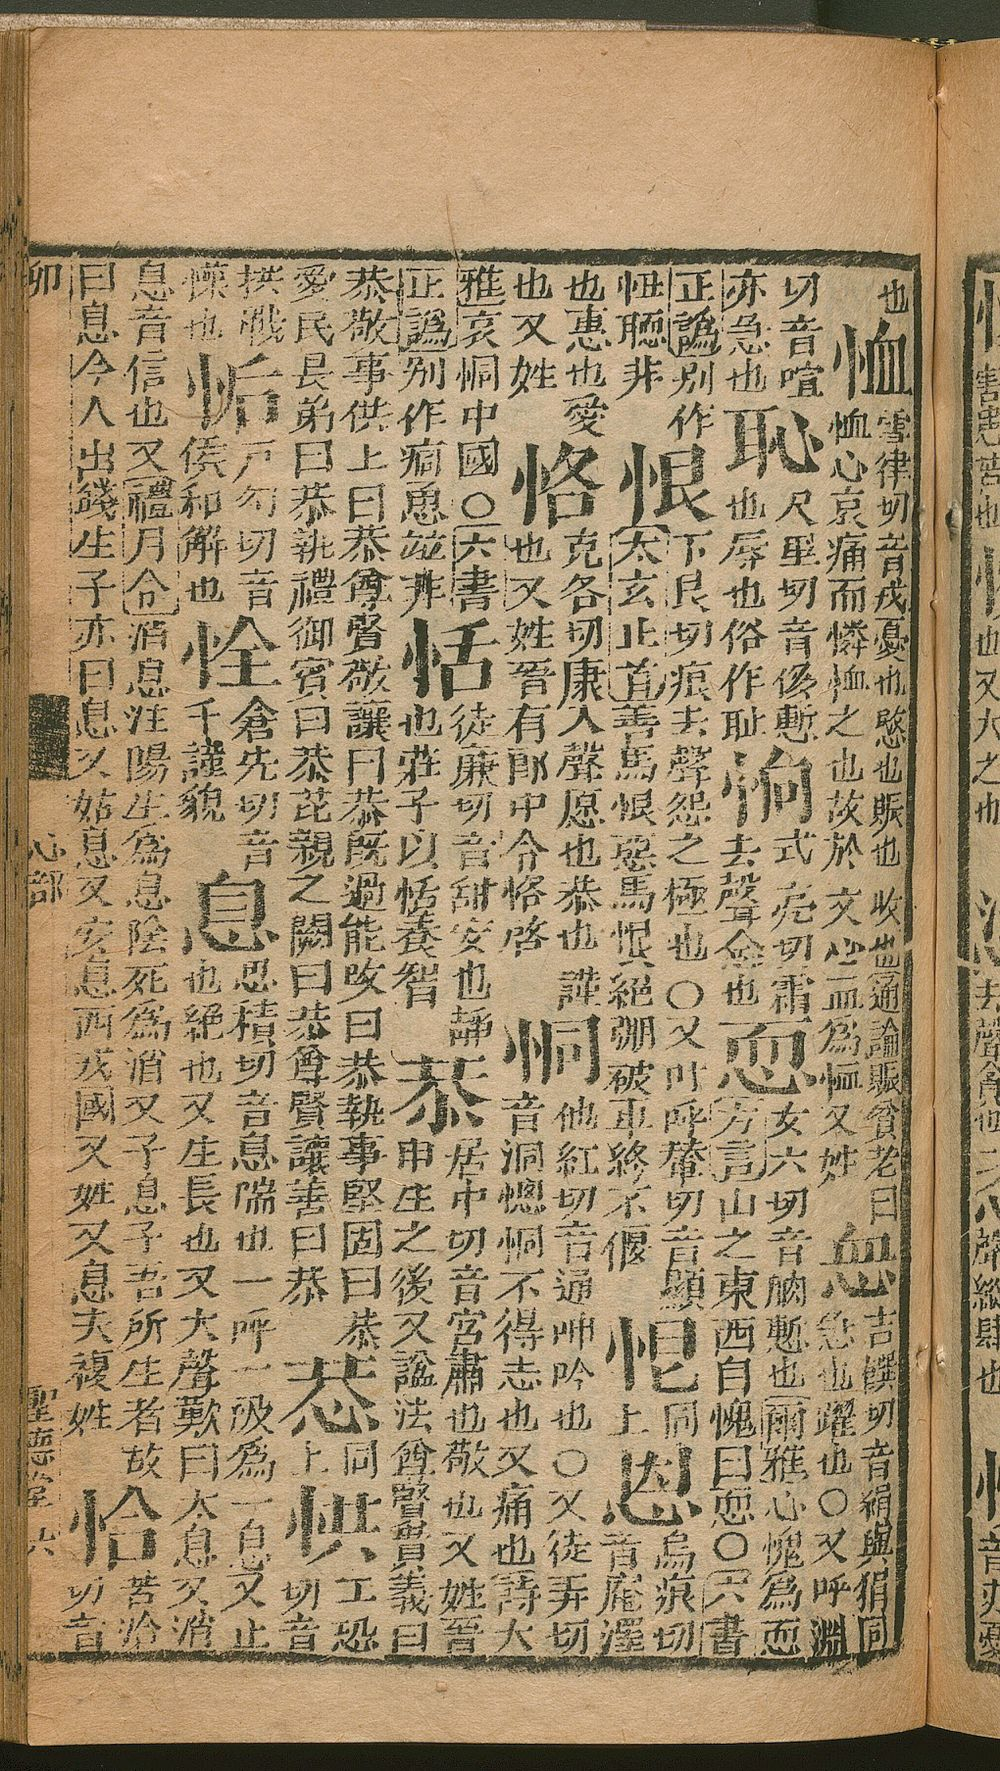 也恤雪律切音戌憂也愍也賑也收也通論賑貧老曰
恤心哀痛而憐恤之也故於文心血為恤又姓
吉饌切音絹與狷同
急也躍也○又呼淵
切音喧
亦急也恥尺里切音侈慙
也辱也俗作耻恦式亮切霜
去聲念也恧女六切音朒慙也爾雅心愧為恧
方言山之東西自愧曰恧○六書
正譌別作
忸非恨下艮切痕去聲怨之極也○又叶呼切音顯
太玄止首善馬恨惡馬恨絕弸破車終不偃
同
上恩烏痕切
音澤
也惠也愛
也又姓恪克各切康入聲愿也恭也謹
也又姓晉有郎中令恪啓恫他紅切音通呻吟也○又徒弄切
音洞惚恫不得志也又痛也詩大
雅哀恫中國○六書
正譌別作痌恿竝非恬徒廉切音甜安也靜
也莊子以恬養智恭居中切音宮肅也敬也又姓晉
申生之後又諡法尊賢貴義曰
恭敬事供上曰恭尊賢敬讓曰恭既過能改曰恭執事堅固曰恭
愛民長弟曰恭執禮御賓曰恭芘親之闕曰恭尊賢讓善曰恭㳟同
上㤨工恐
切音
拱戰
慄也㤧戶勾切音
侯和解也恮倉先切音
千謹貌息思積切音息喘也一呼一吸為一息又止
也絕也又生長也又大聲歎曰太息又消
息音信也又禮月令消息注陽生為息陰死為消又子息子吾所生者故
曰息今人出錢生子亦曰息又姑息又安息西戎國又姓又息夫複姓恰苦洽
切音
卯 心部 聖德堂 六